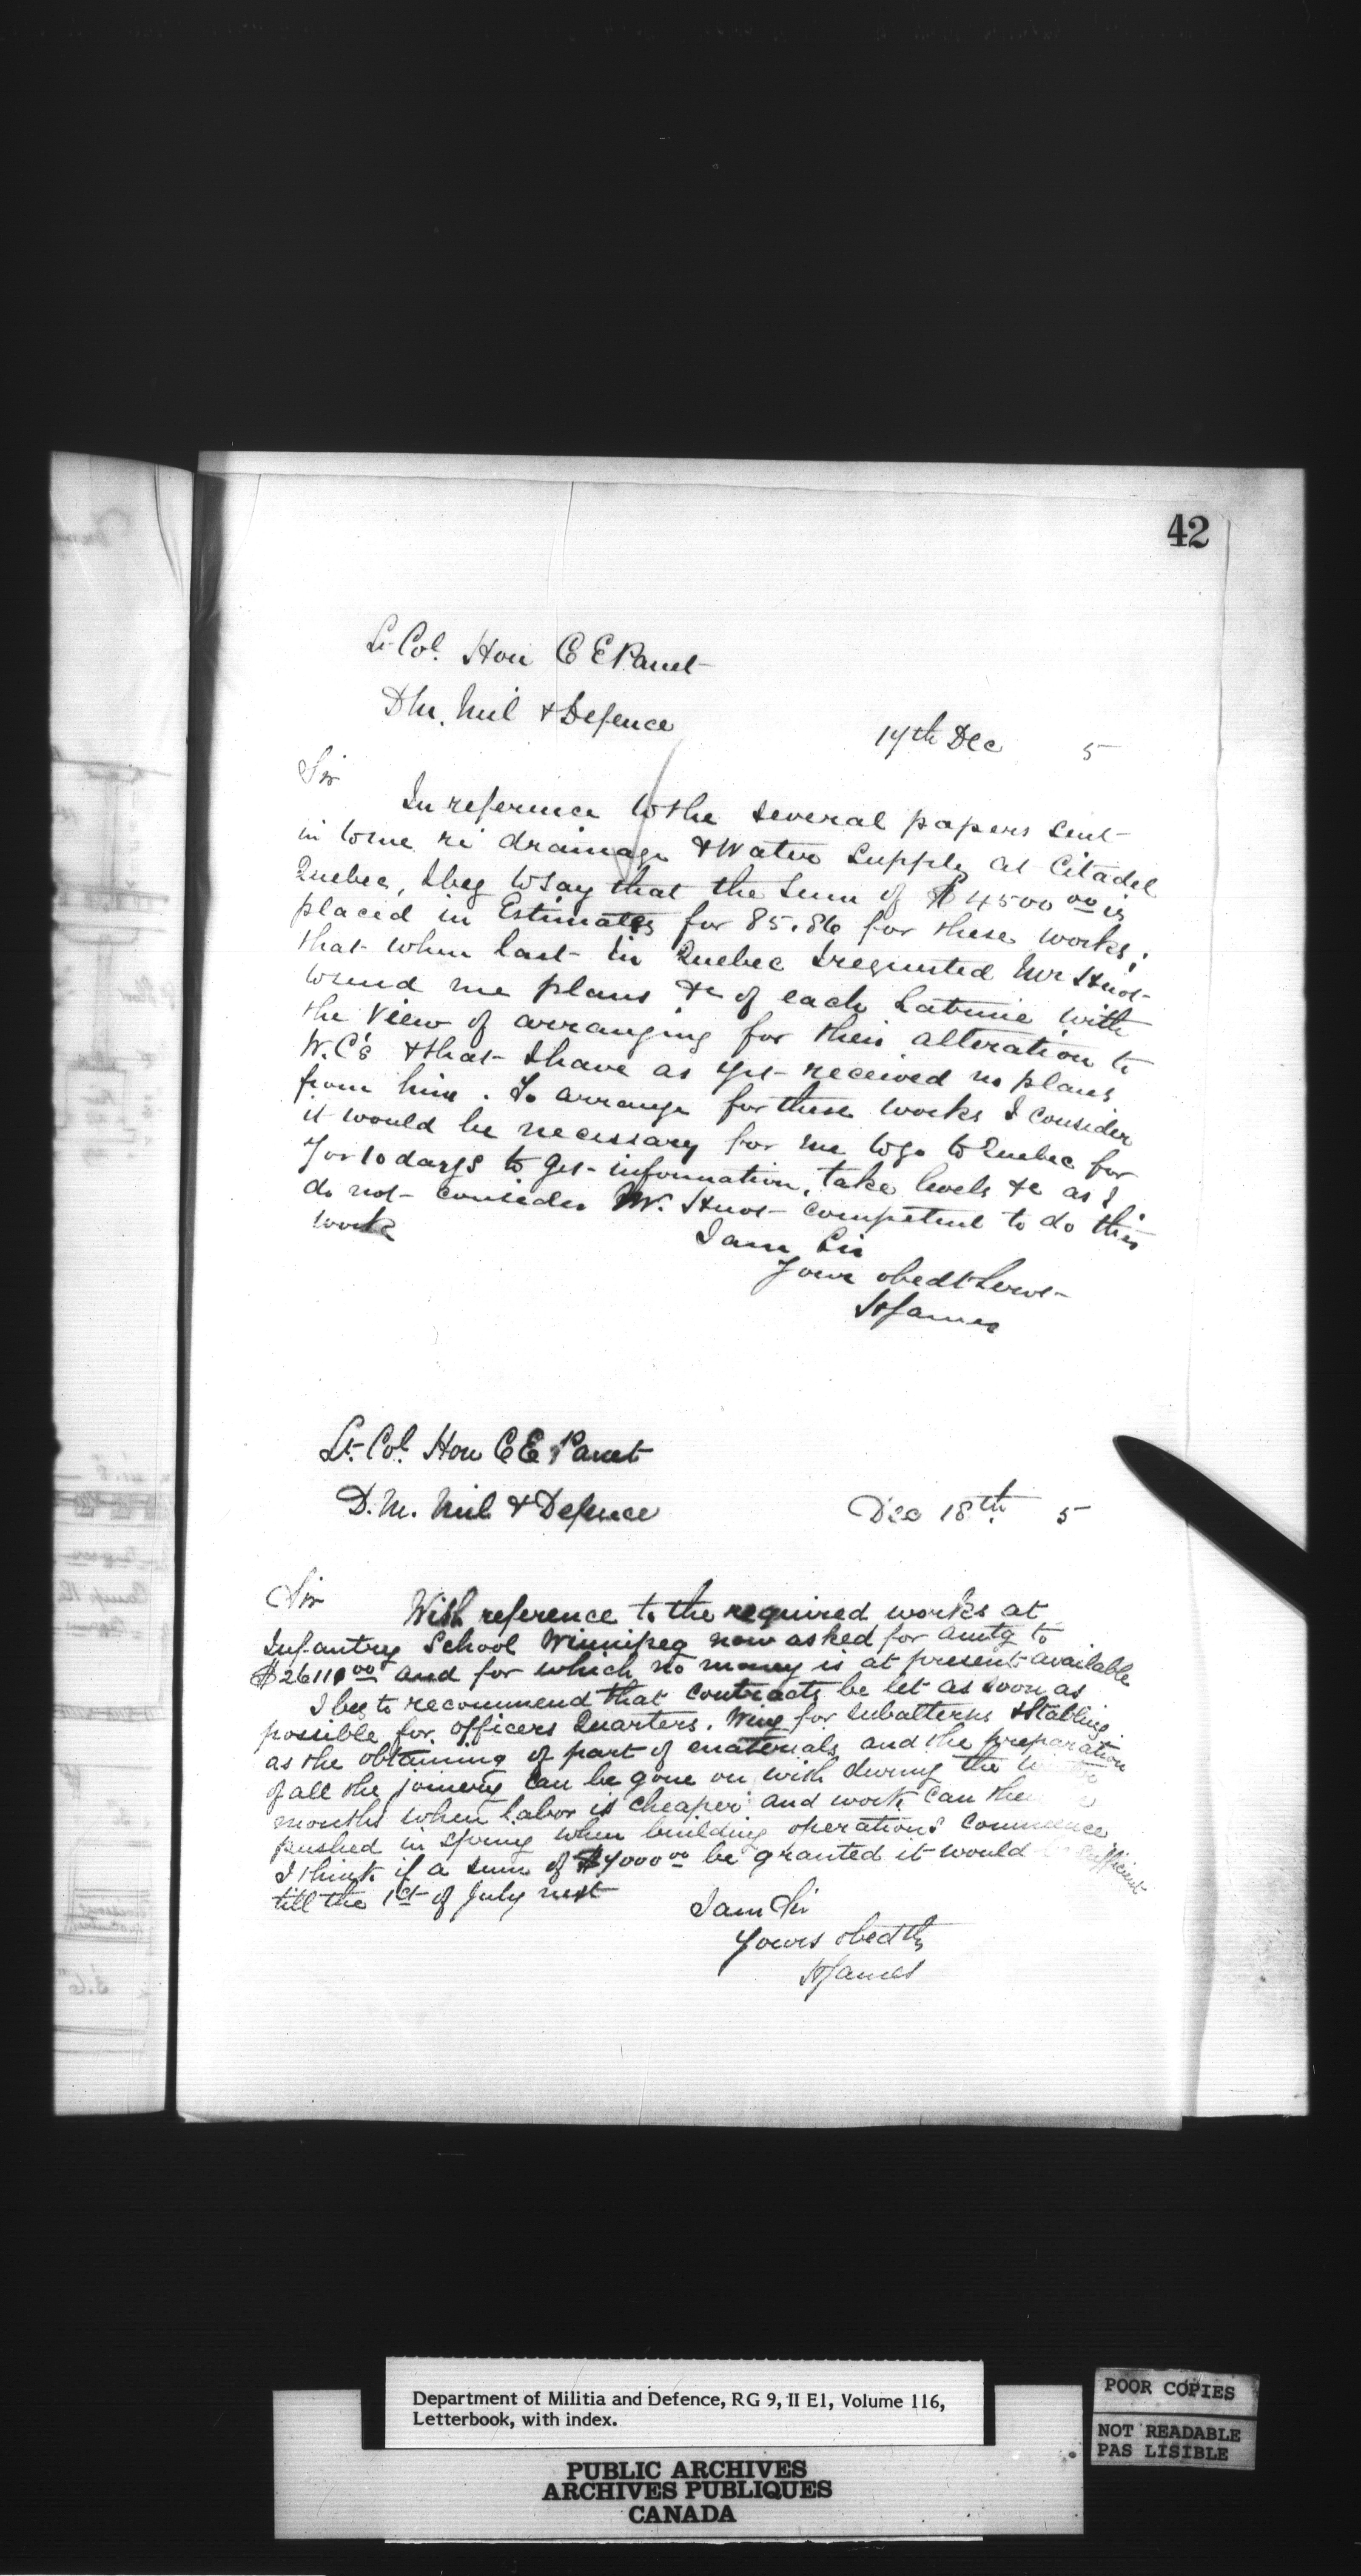 42
Lt Col. Hon C E Panet
D M. Mil & Defence
17th Dec 5
Sir
In reference to the several papers sent
in to me re drainage & Water Supply at Citadel
Quebec, I beg to say that the sum of $4500 00 is
placed in Estimates for 85.86 for these works;
that when last in Quebec I requested Mr
to send me plans &c of each Latrine with
the View of arranging for their alteration to
W.C's & that I have as yet received no plans
from him. To arrange for these works I consider
it would be necessary for me to go to Quebec for
7 or 10 days to get information, take levels &c as I
do not consider Mr. competent to do this
work
I am Sir
Your obedt Servt
H James
Lt. Col. Hon C E Panet
D. M. Mil & Defence
Dec 18th. 5
Sir
With reference to the required works at
Infantry School Winnipeg now asked for amtg to
$26110 00 and for which no money is at present available
I beg to recommend that contracts be let as soon as
possible for officers Quarters. Wing for subalterns & Stabling
as the obtaining of part of materials and the preparation
of all the joinery can be gone on with during the winter
months when labor is cheaper and work can then
pushed in spring when building operations commence
I think if a sum of $7000 00 be granted it would be sufficient
till the 1st of July next
I am Sir
Yours obedtly
H James
Department of Militia and Defence, RG 9, II E1, Volume 116,
Letterbook, with index.
PUBLIC ARCHIVES
ARCHIVES PUBLIQUES
CANADA
POOR COPIES
NOT READABLE
PAS LISIBLE